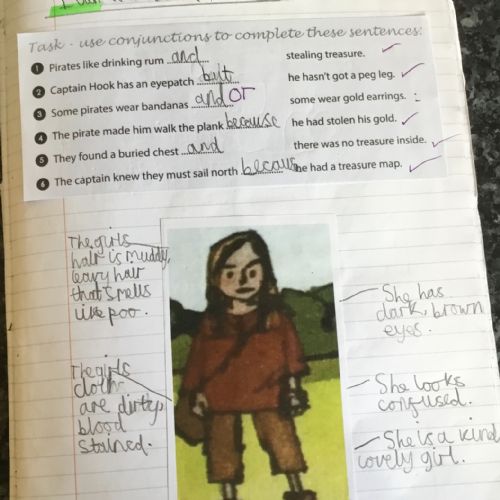 Task - use conjunctions to complete these sentences:
1 Pirates like drinking rum and stealing treasure.
2 Captain Hook has an eyepatch but he hasn't got a peg leg.
3 Some pirates wear bandanas and or some wear gold earrings.
4 The pirate made him walk the plank because he had stolen his gold.
5 They found a buried chest and there was no treasure inside.
6 The captain knew they must sail north becaus he had a treasure map.
The girls
hair is muddy,
leavy hair
that smells
like poo.
The girls
cloth
are dirty
blood
stained.
She has
dark, brown
eyes.
She looks
confused.
She is a kind
lovely girl.